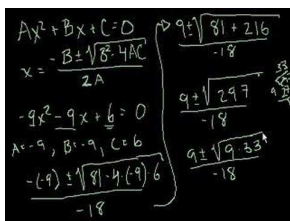 Ax² + Bx + C = 0
x = -B ± √B² - 4AC
2A
-9x² - 9x + 6 = 0
A = -9, B = -9, C = 6
-(-9) ± √81 - 4·(-9)·6
-18
9 ± √81 + 216
-18
9 ± √297
-18
9 ± √9·33
-18